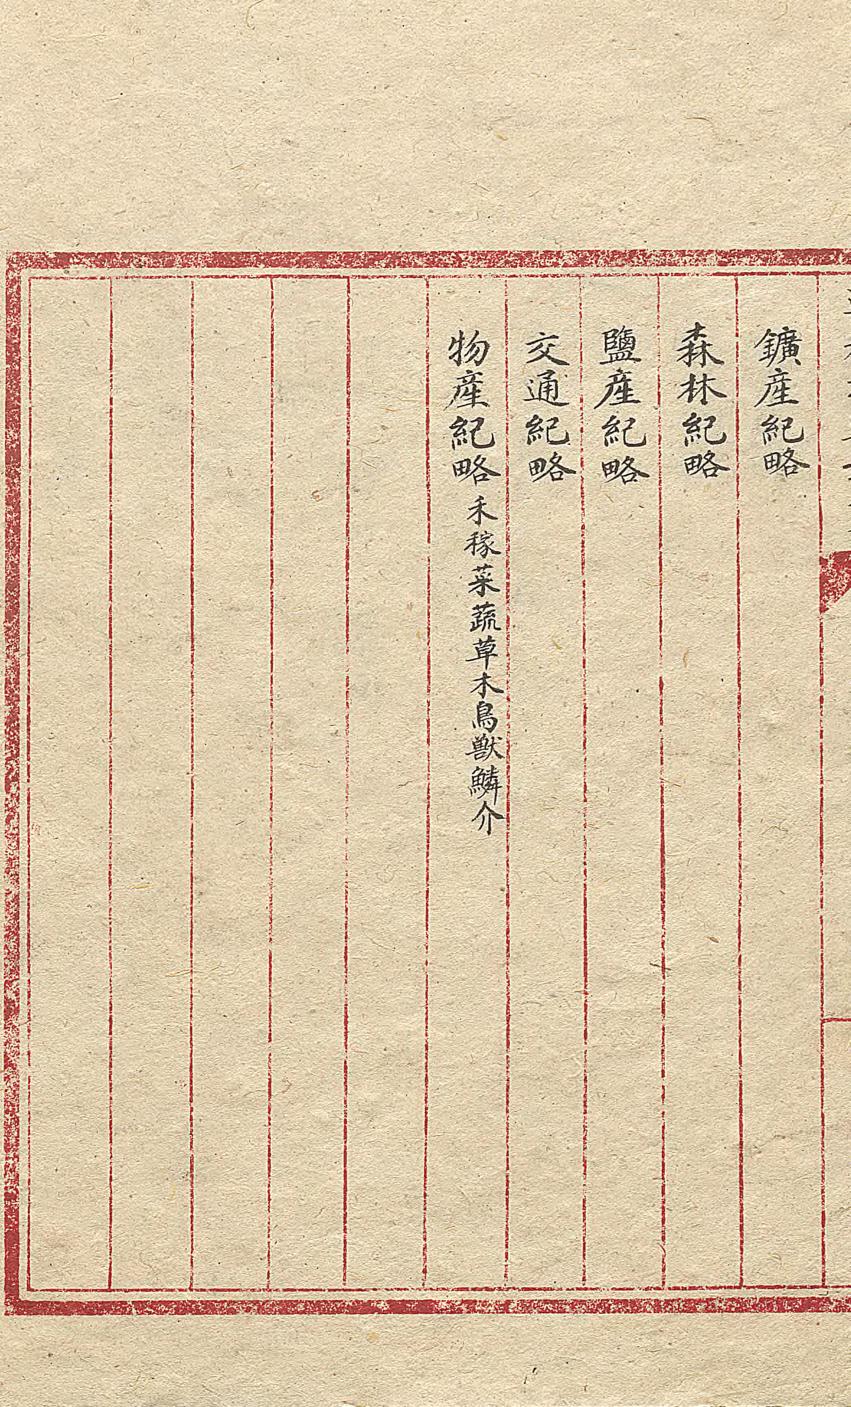 鑛産紀略
森林紀略
鹽産紀略
交通紀略
物産紀略禾稼菜蔬草木鳥獸鱗介